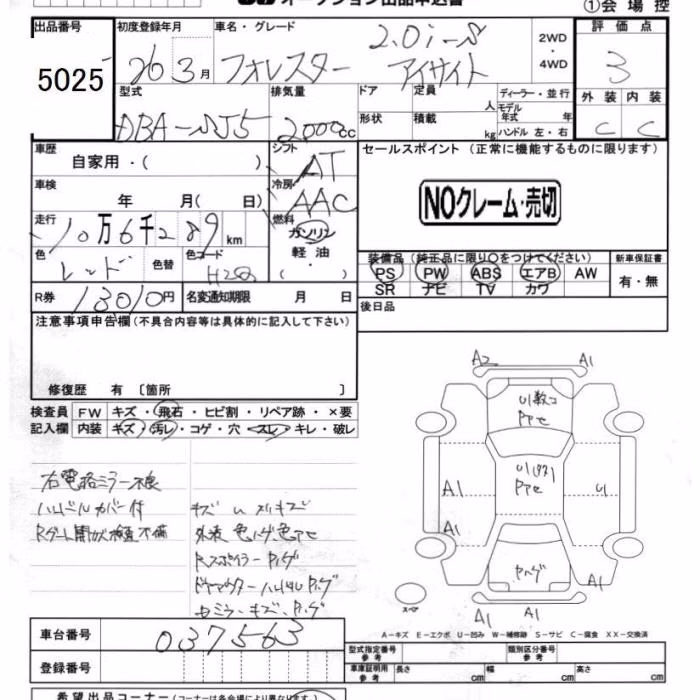 ①会場控
出品番号 初度登録年月 車名・グレード 評価点
5025 26年3月 フォレスター 2.0i-S アイサイト 2WD ・ 4WD 3
型式 排気量 ドア 定員 人 ディーラー・並行 外装 内装
DBA-SJ5 2000cc 形状 積載 kg モデル年式 年 ハンドル 左・右 C C
車歴 自家用・( ) シフト AT セールスポイント (正常に機能するものに限ります)
車検 年 月( 日) 冷房 AAC NOクレーム・売切
走行 10万6千289km 燃料 ガソリン 軽油 ・( )
色 レッド 色替 色コード H2Q 装備品 (純正品に限り○をつけてください) 新車保証書
PS PW ABS エアB AW 有・無
SR ナビ TV カワ
R券 13010円 名変通知期限 月 日 後日品
注意事項申告欄 (不具合内容等は具体的に記入して下さい)
修復歴 有 〔箇所 〕
検査員 FW キズ・飛石・ヒビ割・リペア跡・×要
記入欄 内装 キズ・汚レ・コゲ・穴・スレ・キレ・破レ
右電格ミラー不良
ハンドルカバー付
Rゲート開かず検査不備
キズ U メリキズ
外装 色ハゲ 色アセ
Rスポイラー Pハゲ
ドアミラー キズ、Pハゲ
A2 A1
U数コ
Pアセ
A1 A1 U
Pアセ
Pハゲ
A1 A1 A1
スペア
A-キズ E-エクボ U-凹み W-補修跡 S-サビ C-腐食 XX-交換済
車台番号 037563
型式指定番号 参考 類別区分番号 参考
登録番号 車庫証明用 参考 長さ cm 幅 cm 高さ cm
希望出品コーナー (コーナーは各会場により異なります)